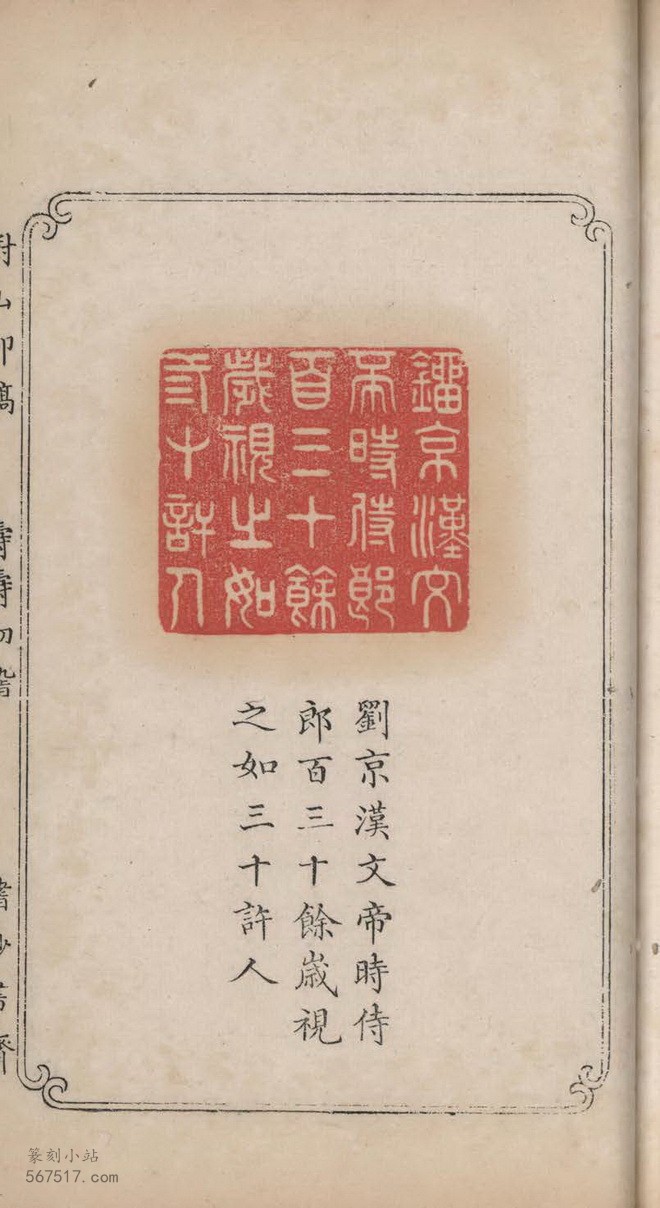 鐂京漢文
帝時侍郎
百三十餘
歲視之如
三十許人
劉京漢文帝時侍
郎百三十餘歲視
之如三十許人
篆刻小站
567517.com